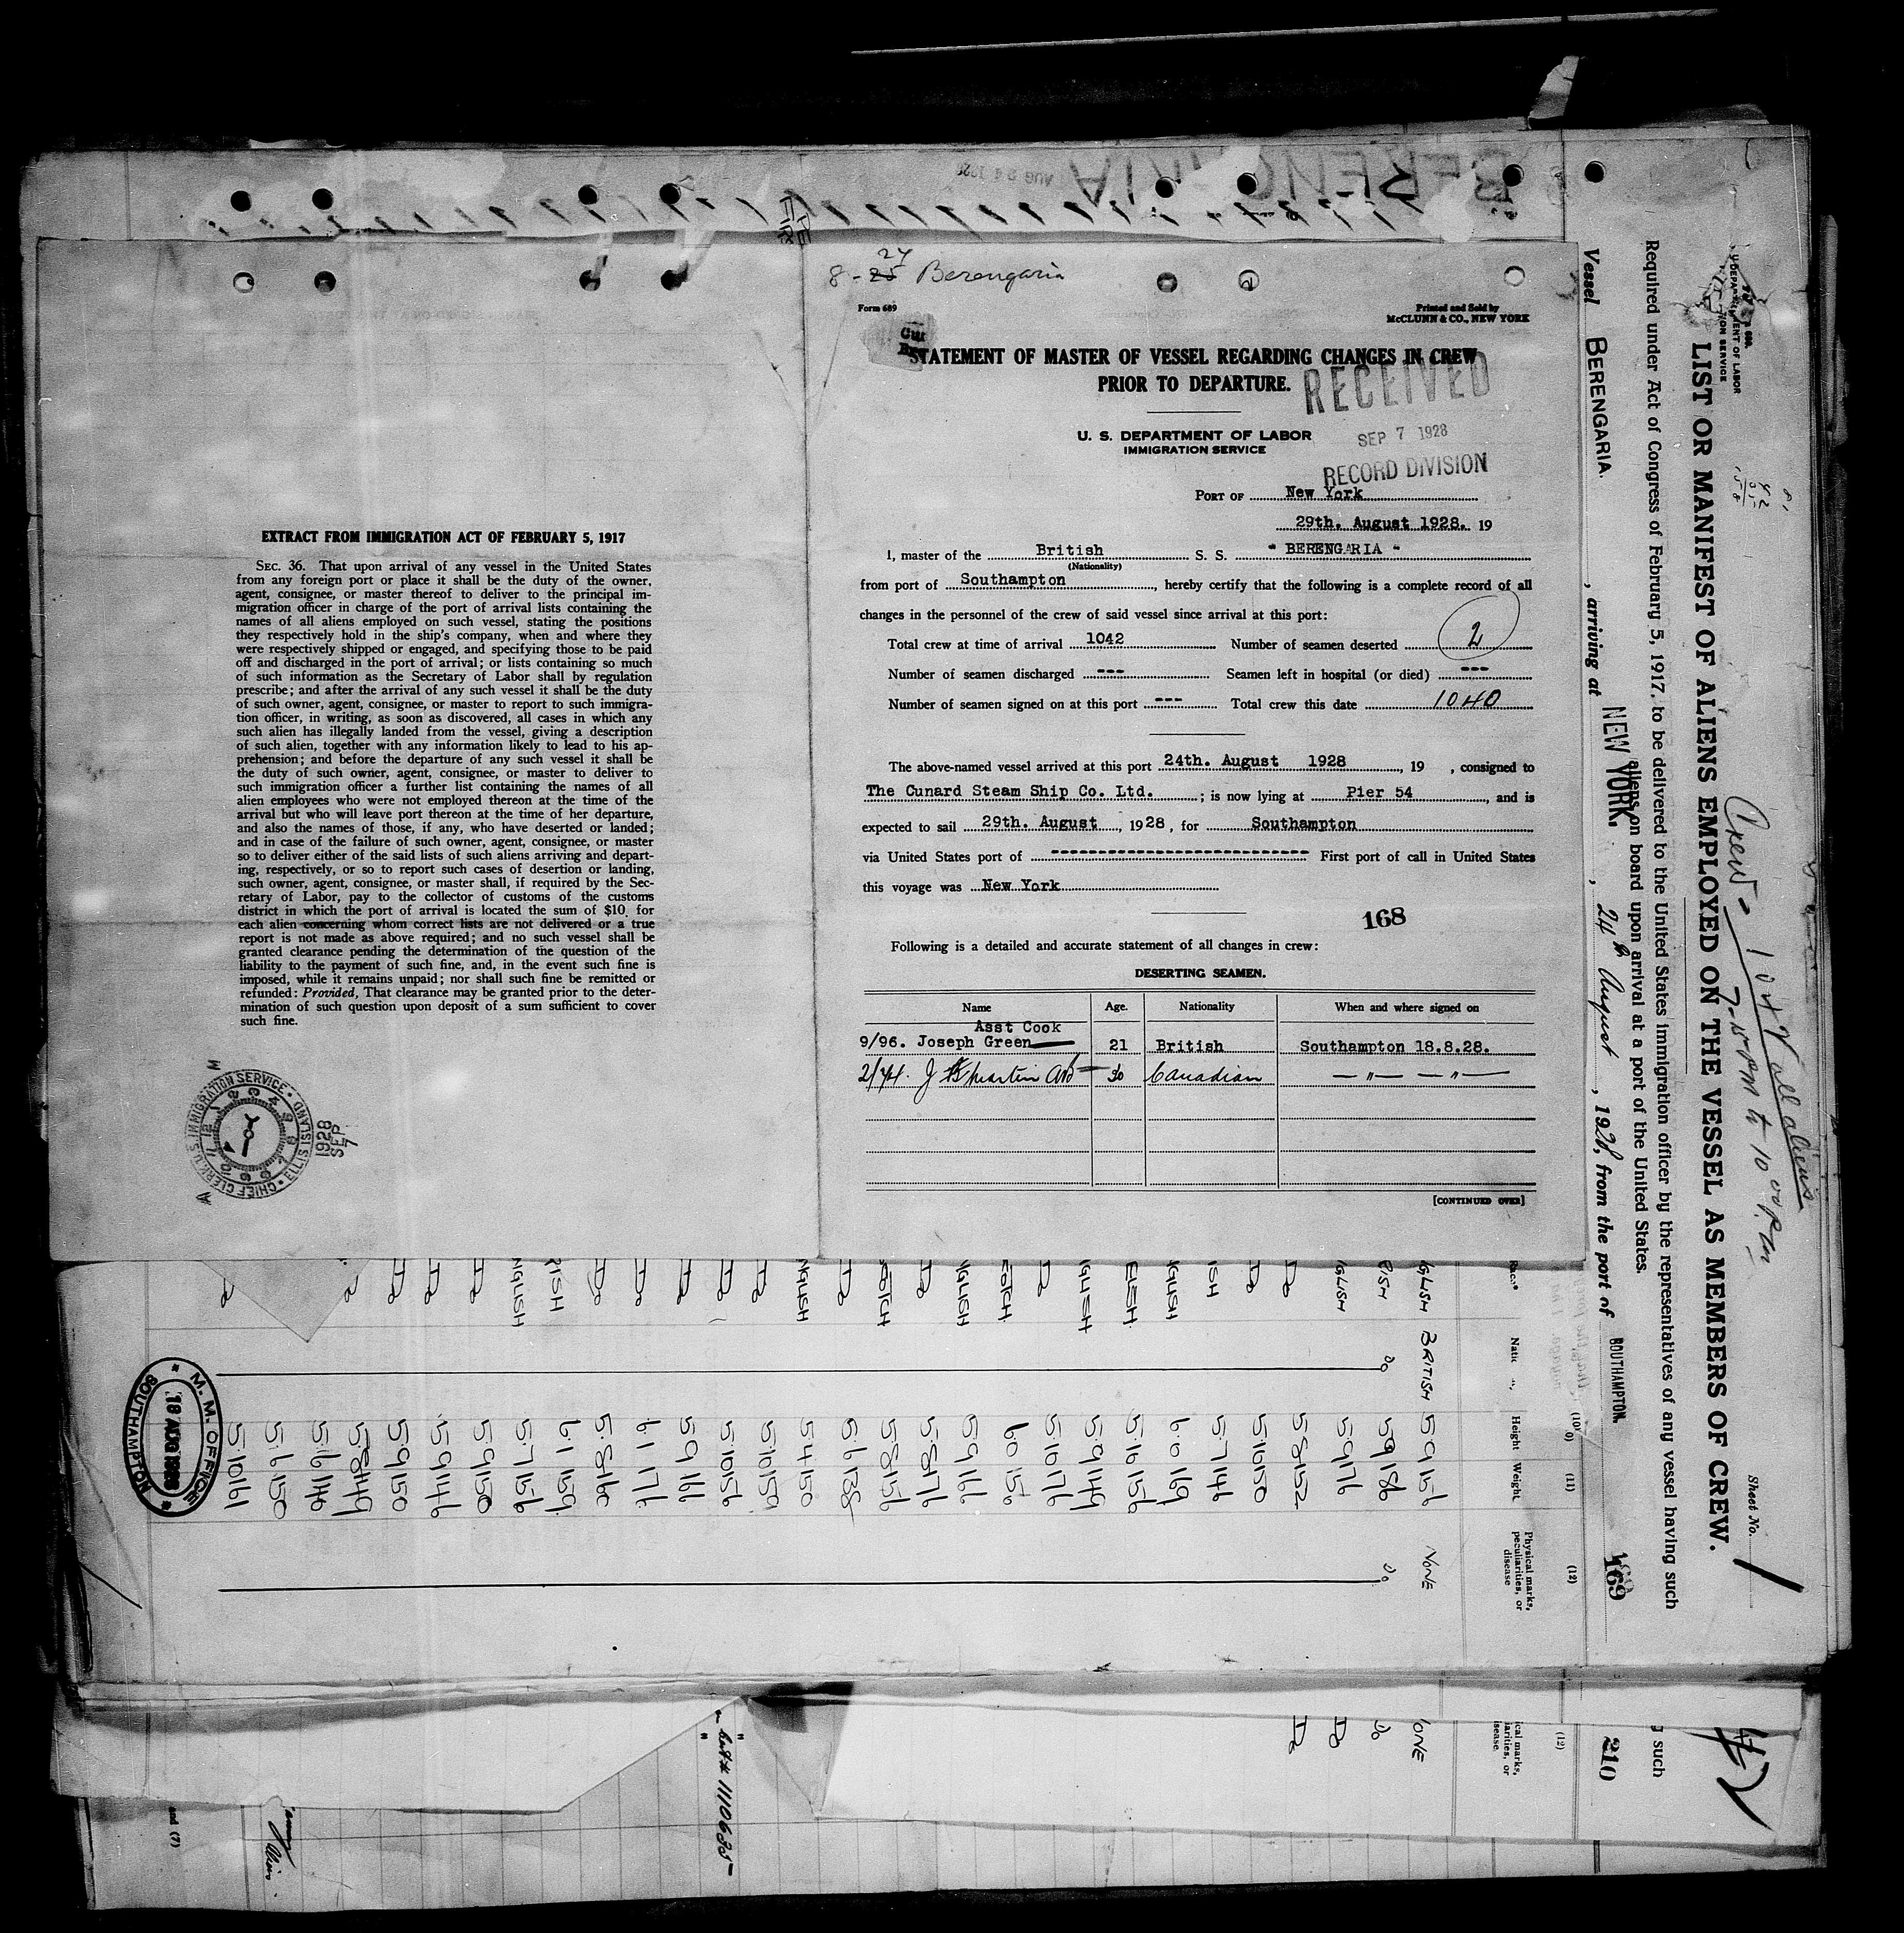 BERENGARIA
AUG 24 1928
8-25 24 Berengaria
Form 689
Printed and Sold by
McCLUNN & CO., NEW YORK
STATEMENT OF MASTER OF VESSEL REGARDING CHANGES IN CREW
PRIOR TO DEPARTURE.
RECEIVED
SEP 7 1928
RECORD DIVISION
U. S. DEPARTMENT OF LABOR
IMMIGRATION SERVICE
PORT OF New York
29th. August 1928. 19
I, master of the British S. S. " BERENGARIA "
(Nationality)
from port of Southampton, hereby certify that the following is a complete record of all
changes in the personnel of the crew of said vessel since arrival at this port:
Total crew at time of arrival 1042 Number of seamen deserted 2
Number of seamen discharged --- Seamen left in hospital (or died) ---
Number of seamen signed on at this port --- Total crew this date 1040
The above-named vessel arrived at this port 24th. August 1928, 19 , consigned to
The Cunard Steam Ship Co. Ltd. ; is now lying at Pier 54, and is
expected to sail 29th. August, 1928, for Southampton
via United States port of ---------------------------- First port of call in United States
this voyage was New York
168
Following is a detailed and accurate statement of all changes in crew:
DESERTING SEAMEN.
Name Age. Nationality When and where signed on
Asst Cook
9/96. Joseph Green 21 British Southampton 18.8.28.
2/44. J Martin AB 30 Canadian — " — — " —
[CONTINUED OVER]
EXTRACT FROM IMMIGRATION ACT OF FEBRUARY 5, 1917
SEC. 36. That upon arrival of any vessel in the United States
from any foreign port or place it shall be the duty of the owner,
agent, consignee, or master thereof to deliver to the principal im-
migration officer in charge of the port of arrival lists containing the
names of all aliens employed on such vessel, stating the positions
they respectively hold in the ship's company, when and where they
were respectively shipped or engaged, and specifying those to be paid
off and discharged in the port of arrival; or lists containing so much
of such information as the Secretary of Labor shall by regulation
prescribe; and after the arrival of any such vessel it shall be the duty
of such owner, agent, consignee, or master to report to such immigra-
tion officer, in writing, as soon as discovered, all cases in which any
such alien has illegally landed from the vessel, giving a description
of such alien, together with any information likely to lead to his ap-
prehension; and before the departure of any such vessel it shall be
the duty of such owner, agent, consignee, or master to deliver to
such immigration officer a further list containing the names of all
alien employees who were not employed thereon at the time of the
arrival but who will leave port thereon at the time of her departure,
and also the names of those, if any, who have deserted or landed;
and in case of the failure of such owner, agent, consignee, or master
so to deliver either of the said lists of such aliens arriving and depart-
ing, respectively, or so to report such cases of desertion or landing,
such owner, agent, consignee, or master shall, if required by the Sec-
retary of Labor, pay to the collector of customs of the customs
district in which the port of arrival is located the sum of $10 for
each alien concerning whom correct lists are not delivered or a true
report is not made as above required; and no such vessel shall be
granted clearance pending the determination of the question of the
liability to the payment of such fine, and, in the event such fine is
imposed, while it remains unpaid; nor shall such fine be remitted or
refunded: Provided, That clearance may be granted prior to the deter-
mination of such question upon deposit of a sum sufficient to cover
such fine.
CHIEF CLERK U.S. IMMIGRATION SERVICE • ELLIS ISLAND
SEP 7
1928
Crew - 1041 all aliens
7-15 pm to 10 00 p m
Sheet No. 1
LIST OR MANIFEST OF ALIENS EMPLOYED ON THE VESSEL AS MEMBERS OF CREW.
Required under Act of Congress of February 5, 1917, to be delivered to the United States immigration officer by the representatives of any vessel having such
aliens on board upon arrival at a port of the United States.
Vessel BERENGARIA. , arriving at NEW YORK. , 24th August , 1928, from the port of SOUTHAMPTON.
169
(10) (11) (12)
Height Weight Physical marks, peculiarities, or disease
GLISH BRITISH 5.9 156 NONE
RISH do 5.9 186 do
GLISH 5.9 176
5.8 152
5.10 150
ISH 5.7 146
GLISH 6.0 169
ELSH 5.10 156
GLISH 5.9 149
5.10 176
6.0 156
GLISH 5.9 166
5.8 176
5.8 156
5.6 138
NGLISH 5.4 150
5.10 159
5.10 156
5.9 166
6.1 176
5.8 160
RISH 6.1 159
NGLISH 5.7 156
5.9 150
5.9 146
5.9 150
5.8 149
5.6 146
5.6 150
5.10 161
M. M. OFFICE
18 AUG 1928
SOUTHAMPTON
210
such
(12)
ONE
do
111063
and (7)